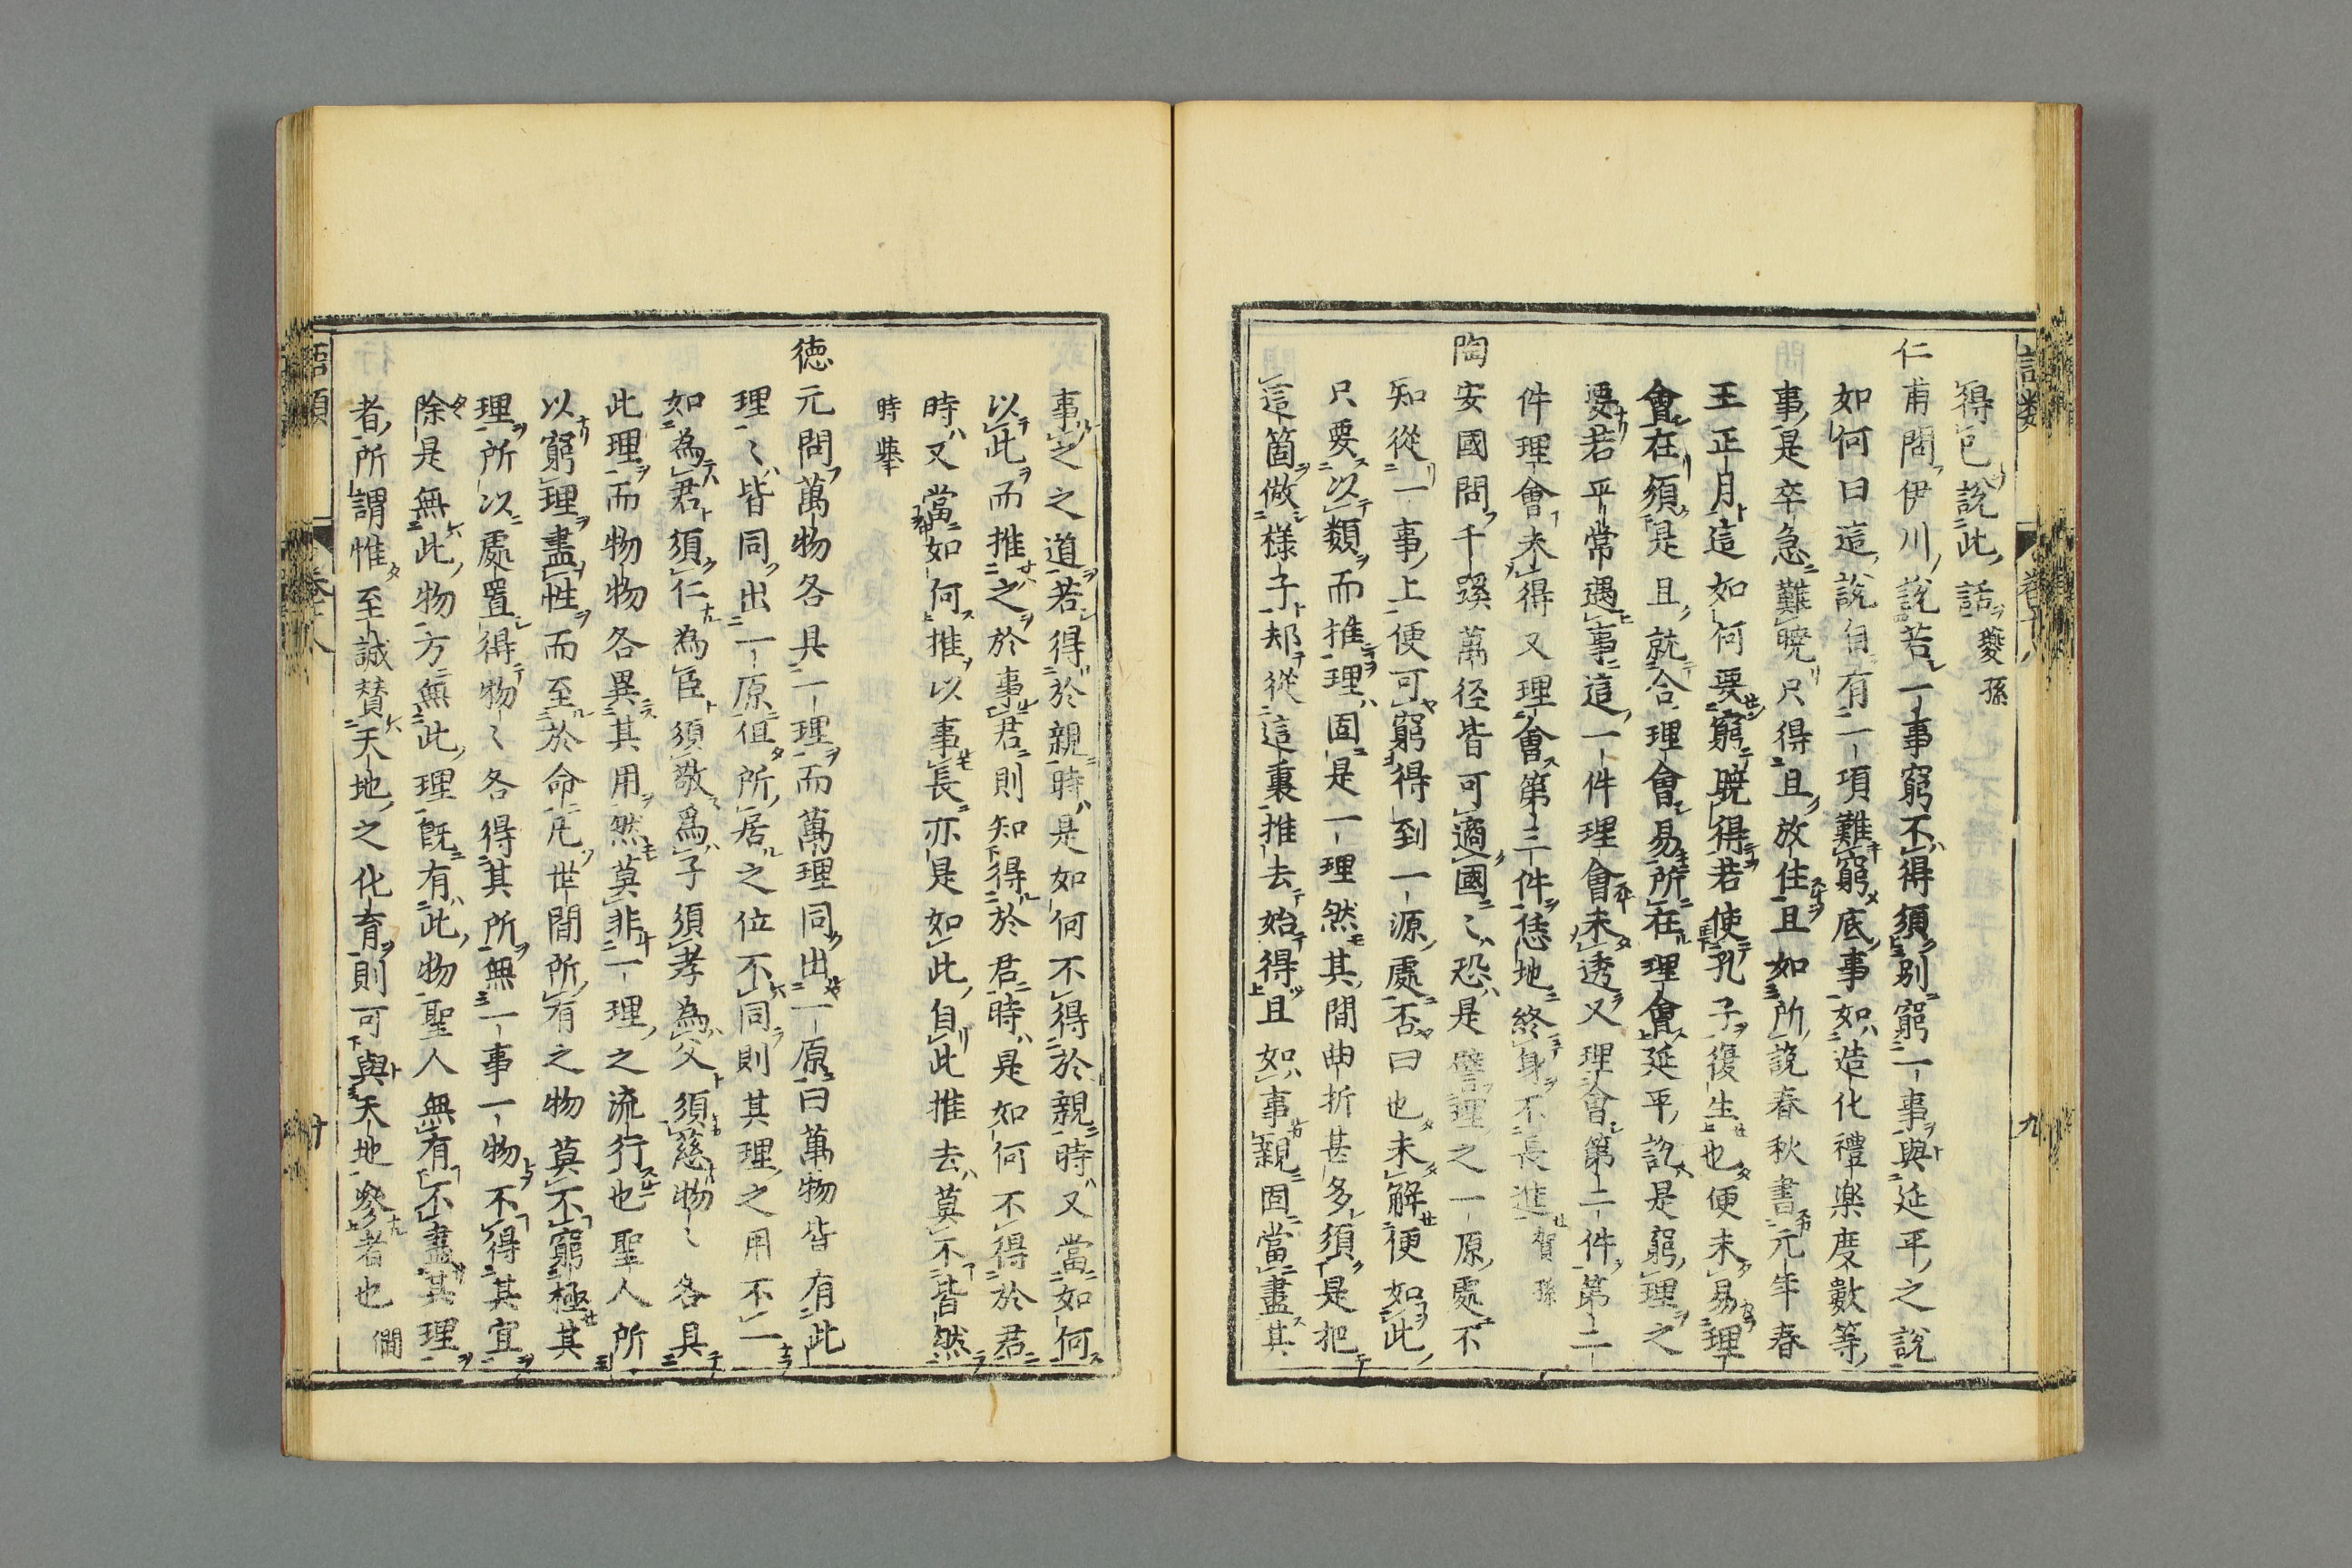 得他說此話 夔孫
仁甫問伊川說若一事窮不得須別窮一事與延平之說
如何曰這說自有一項難窮底事如造化禮楽度數等
事是卒急難暁只得且放住且如所說春秋書元年春
王正月這如何要窮暁得若使孔子復生也便未易理
會在須是且就合理會易所在理會延平說是窮理之
要若平常遇事這一件理會未透又理會第二件第二
件理會未得又理會第三件恁地終身不長進 賀孫
陶安國問千蹊萬径皆可適國〻恐是譬理之一原處不
知從一事上便可窮得到一源處否曰也未解便如此
只要以類而推理固是一理然其間曲折甚多須是把
這箇做様子却從這裏推去始得且如事親固當盡其
事之之道若得於親時是如何不得於親時又當如何
以此而推之於事君則知得於君時是如何不得於君
時又當如何推以事長亦是如此自此推去莫不皆然
時挙
徳元問萬物各具一理而萬理同出一原曰萬物皆有此
理〻皆同出一原但所居之位不同則其理之用不一
如為君須仁為臣須敬為子須孝為父須慈物〻各具
此理而物物各異其用然莫非一理之流行也聖人所
以窮理盡性而至於命凡世間所有之物莫不窮極其
理所以處置得物〻各得其所無一事一物不得其宜
除是無此物方無此理既有此物聖人無有不盡其理
者所謂惟至誠賛天地之化育則可與天地參者也 僩
語類
巻十八
九
十